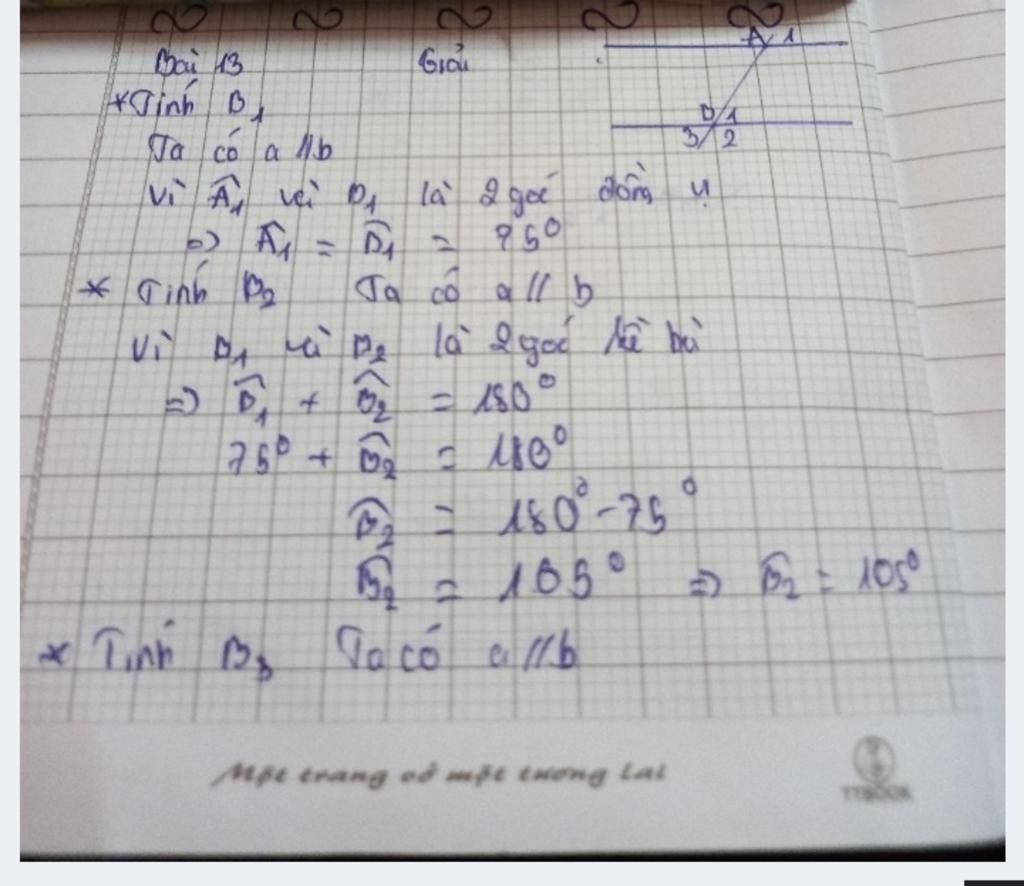 Bài 13 Giải
A 1
* Tính B1
B 1
3 2
Ta có a // b
Vì Â1 và B1 là 2 góc đồng vị
=> Â1 = B̂1 = 75°
* Tính B2 Ta có a // b
Vì B1 và B2 là 2 góc kề bù
=> B̂1 + B̂2 = 180°
75° + B̂2 = 180°
B̂2 = 180° - 75°
B̂2 = 105° => B̂2 = 105°
* Tính B3 Ta có a // b
Một trang vở một tương lai
TTBOOK